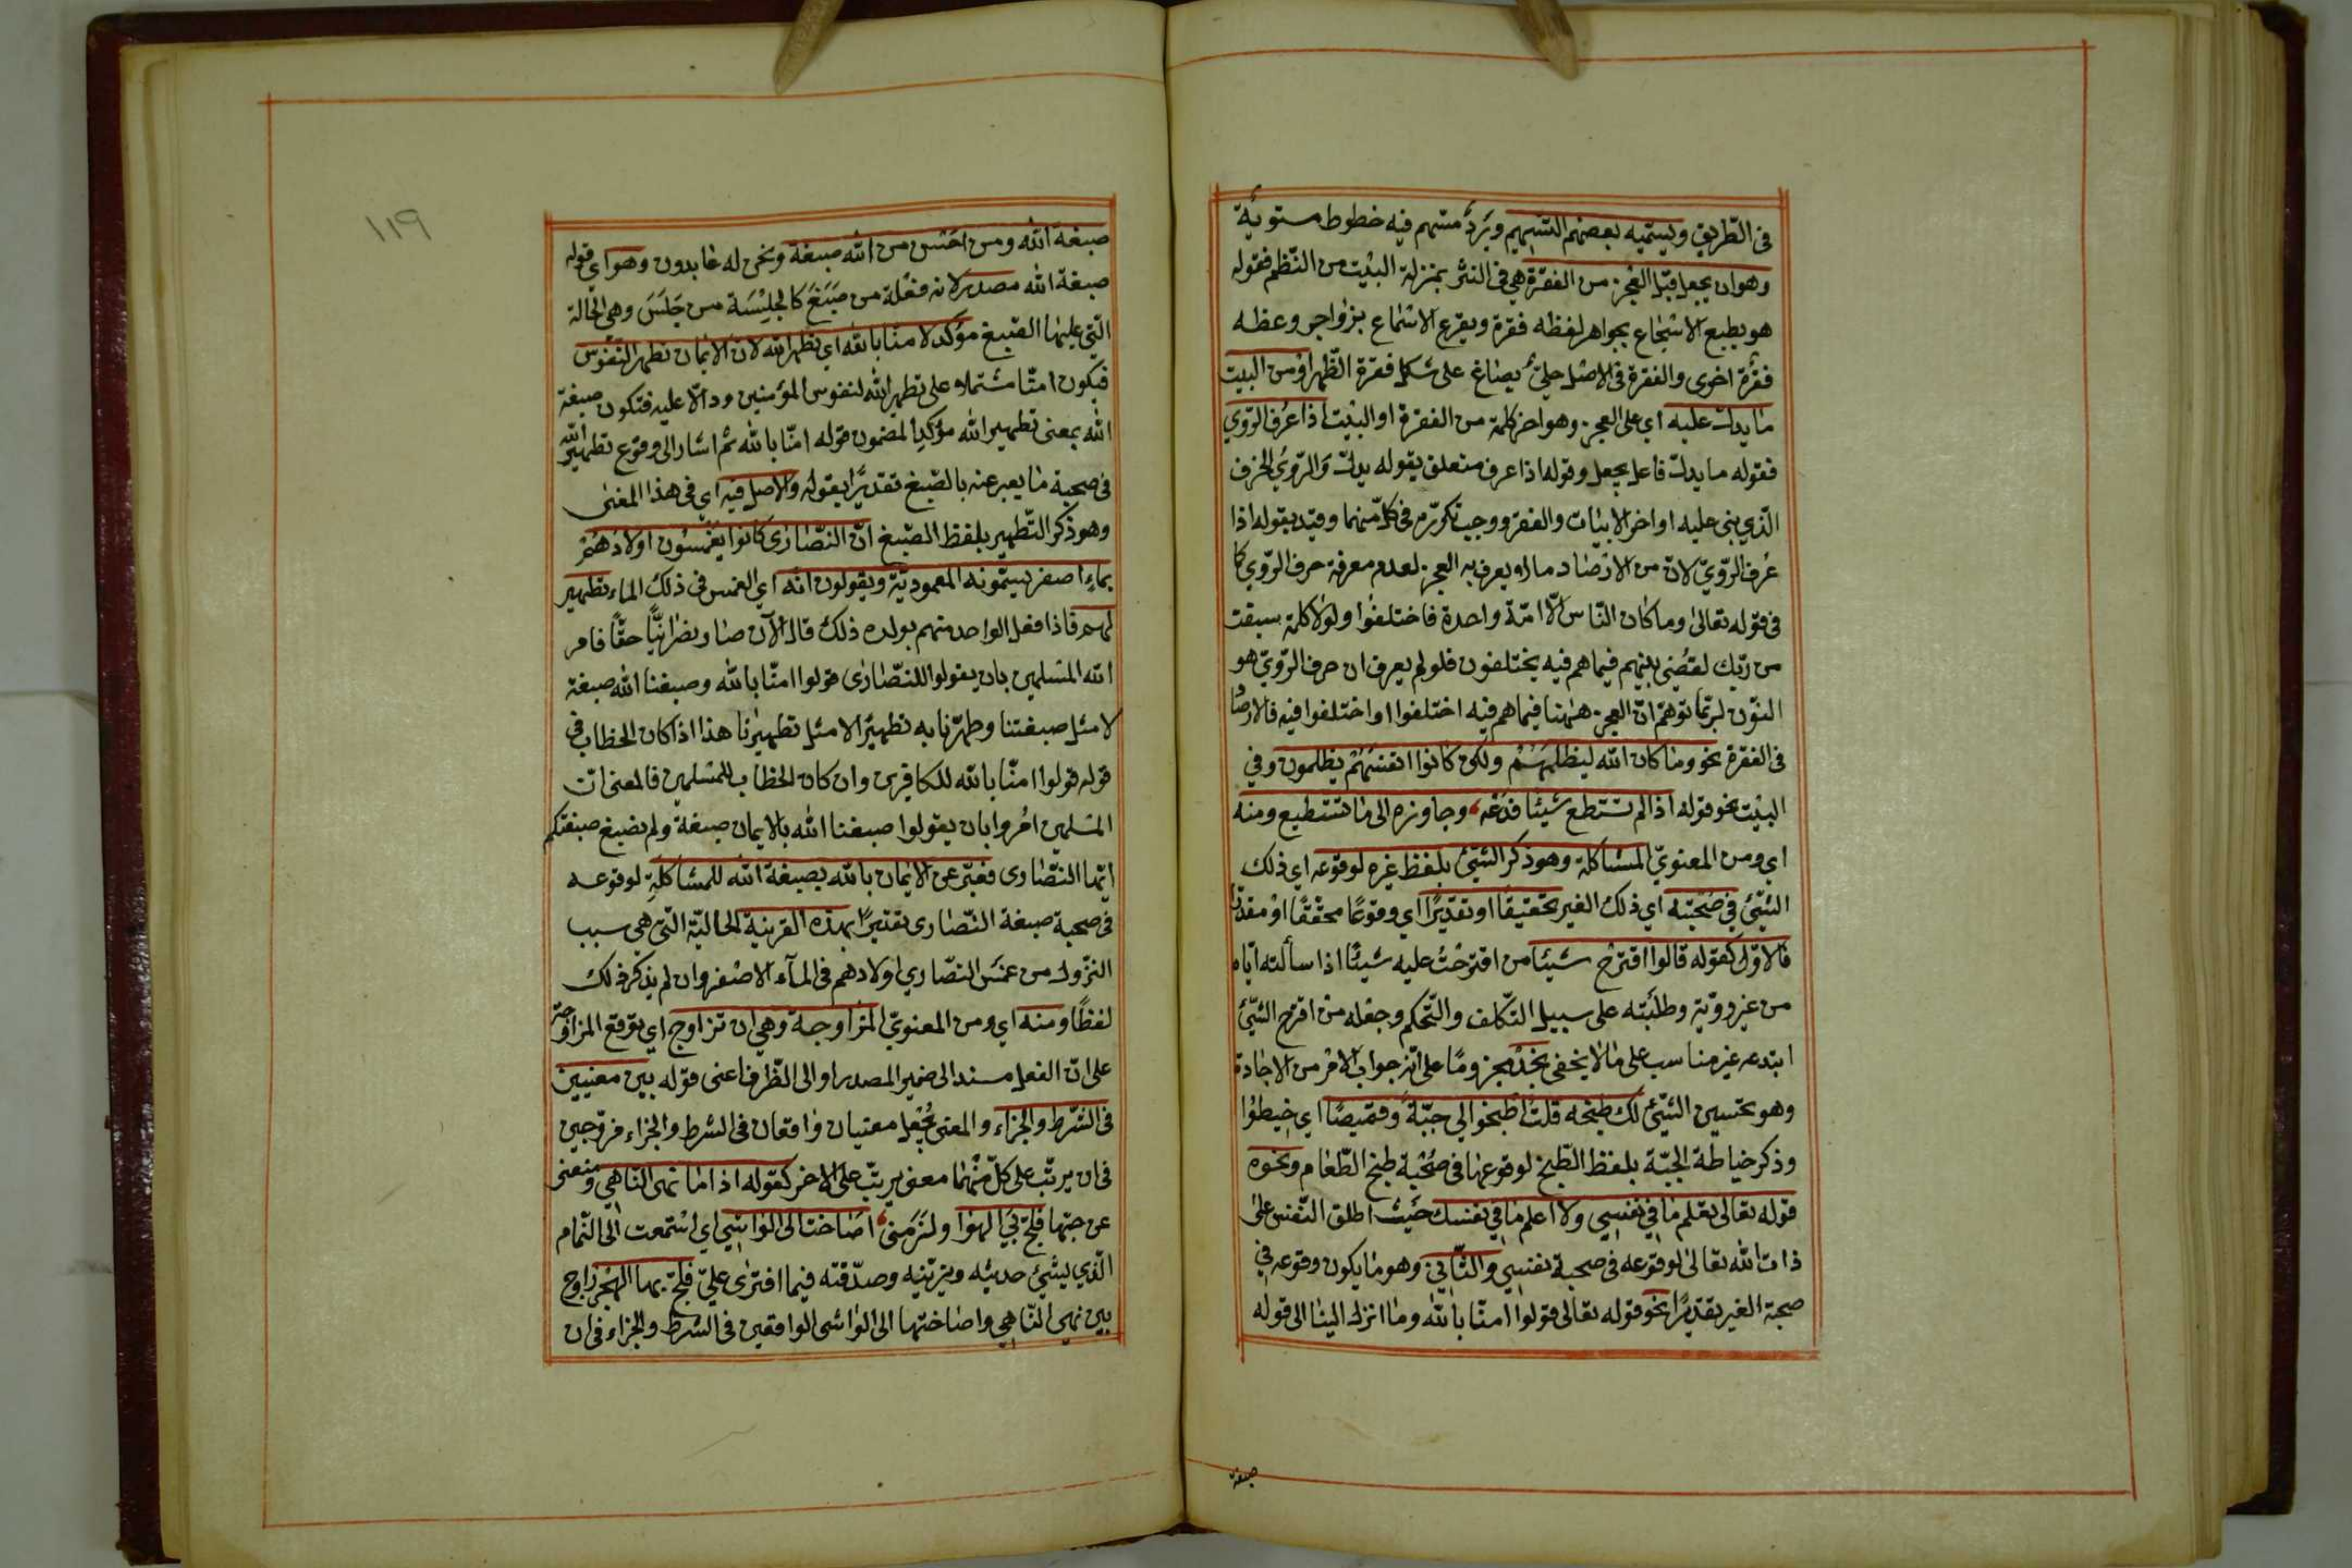 فى الطّريق ويسمّيه بعضهم التسهيم وبرد مسهم فيه خطوط مستوية
وهو ان يجعل قبل العجز من الفقرة هى فى النثر بمنزلة البيت من النّظم فقوله
هو يطبع الاسجاع بجواهر لفظه فقرة ويقرع الاسماع بزواجر وعظه
فقرة اخرى والفقرة فى الاصل حلىّ يصاغ على شكل فقرة الظّهر او من البيت
ما يدلّ عليه اى على العجز وهو اخر كلمة من الفقرة او البيت اذا عُرف الرّوىّ
فقوله ما يدلّ فاعل يجعل وقوله اذا عرف متعلق بقوله يدلّ والرّوىّ الحرف
الّذي بنى عليه اواخر الابيات والفقر ووجب تكرّره فى كلّ منهما وقيّد بقوله اذا
عُرف الرّوىّ لانّ من الارصاد ما لا يعرف به العجز لعدم معرفة حرف الرّوىّ كما
فى قوله تعالى وما كان النّاس الّا امّة واحدة فاختلفوا ولولا كلمة سبقت
من ربّك لقضى بينهم فيما هم فيه يختلفون فلو لم يعرف ان حرف الرّوىّ هو
النون لربّما توهّم انّ العجز ههنا فيما هم فيه اختلفوا او اختلفوا فيه فالارصاد
فى الفقرة نحو وما كان الله ليظلمهم ولكن كانوا انفسهم يظلمون وفي
البيت نحو قوله اذا لم تستطع شيئا فدعه وجاوزه الى ما تستطيع ومنه
اي ومن المعنويّ المشاكلة وهو ذكر الشئ بلفظ غيره لوقوعه اي ذلك
الشئ في صحبته اي ذلك الغير تحقيقًا او تقديرًا اي وقوعًا محقّقًا او مقدّرا
فالاوّل كقوله قالوا اقترح شيئا من اقترحتُ عليه شيئًا اذا سألته ايّاه
من غير رويّة وطلبته على سبيل التّكلف والتّحكم وجعله من اقترح الشئ
ابتدعه غير مناسب على ما لا يخفى نجد مجزومًا على انّه جواب الامر من الاجادة
وهو تحسين الشئ لك طبخه قلت اطبخوا لي جبّةً وقميصًا اي خيطوا
وذكر خياطة الجبّة بلفظ الطّبخ لوقوعها فى صحبة طبخ الطّعام ونحوه
قوله تعالى تعلم ما في نفسي ولا اعلم ما في نفسك حيث اطلق النّفس على
ذات الله تعالى لوقوعه فى صحبة نفسي والثّاني وهو ما يكون وقوعه في
صحبة الغير تقديرًا نحو قوله تعالى قولوا امنّا بالله وما انزل الينا الى قوله
صبغة
١١٩
صبغة الله ومن احسن من الله صبغة ونحن له عابدون وهو اي قوله
صبغة الله مصدر لانه فعلة من صَبَغَ كالجِلْسَة من جَلَسَ وهي الحالة
الّتي عليها الصّبغ مؤكد لامنّا بالله اي تطهير الله لان الايمان تطهر النّفوس
فيكون امنّا مشتملا على تطهير الله لنفوس المؤمنين ودالّا عليه فتكون صبغة
الله بمعنى تطهير الله مؤكدا لمضمون قوله امنّا بالله ثمّ اشار الى وقوع تطهير الله
فى صحبة ما يعبر عنه بالصّبغ تقديرًا بقوله والاصل فيه اي فى هذا المعنى
وهو ذكر التّطهير بلفظ الصّبغ انّ النّصارى كانوا يغمسون اولادهم
بماءٍ اصفر يسمّونه المعموديّة ويقولون انّه اي الغمس فى ذلك الماء تطهير
لهم فاذا فعل الواحد منهم بولده ذلك قال الآن صار نصرانيًّا حقّا فامر
الله المسلمين بان يقولوا للنّصارى قولوا امنّا بالله وصبغنا الله صبغة
لا مثل صبغتنا وطهّرنا به تطهيرًا لا مثل تطهيرنا هذا اذا كان الخطاب في
قوله قولوا امنّا بالله للكافرين وان كان الخطاب للمسلمين فالمعنى انّ
المسلمين امُروا بان يقولوا صبغنا الله بالايمان صبغة ولم نصبغ صبغتكم
ايّها النّصارى فعبّر عن الايمان بالله بصبغة الله للمشاكلة لوقوعه
فى صحبة صبغة النّصارى تقديرًا بهذه القرينة الحاليّة الّتي هي سبب
النّزول من غمس النصّاري اولادهم فى المآء الاصفر وان لم يذكر ذلك
لفظًا ومنه اي ومن المعنويّ المزاوجة وهي ان تزاوج اي توقع المزاوجة
على انّ الفعل مسند الى ضمير المصدر او الى الظّرف اعنى قوله بين معنيين
فى الشّرط والجزاء والمعنى يُجْعل معنيان واقعان فى الشرط والجزاء مزوجين
فى ان يرتّب على كلّ منهما معنى يرتّب على الاخر كقوله اذا ما نهى النّاهي ومنعنى
عن حبّها فلجّ بي الهوا ولزمنى اصاخت الى الواشي اي استمعت الى النّمام
الّذي يشئ حديثه ويزيّنه وصدّقته فيما افترى عليّ فلجّ بها الهجر زاوج
بين نهى النّاهي واصاختها الى الواشى الواقعين فى الشرط والجزاء فى ان